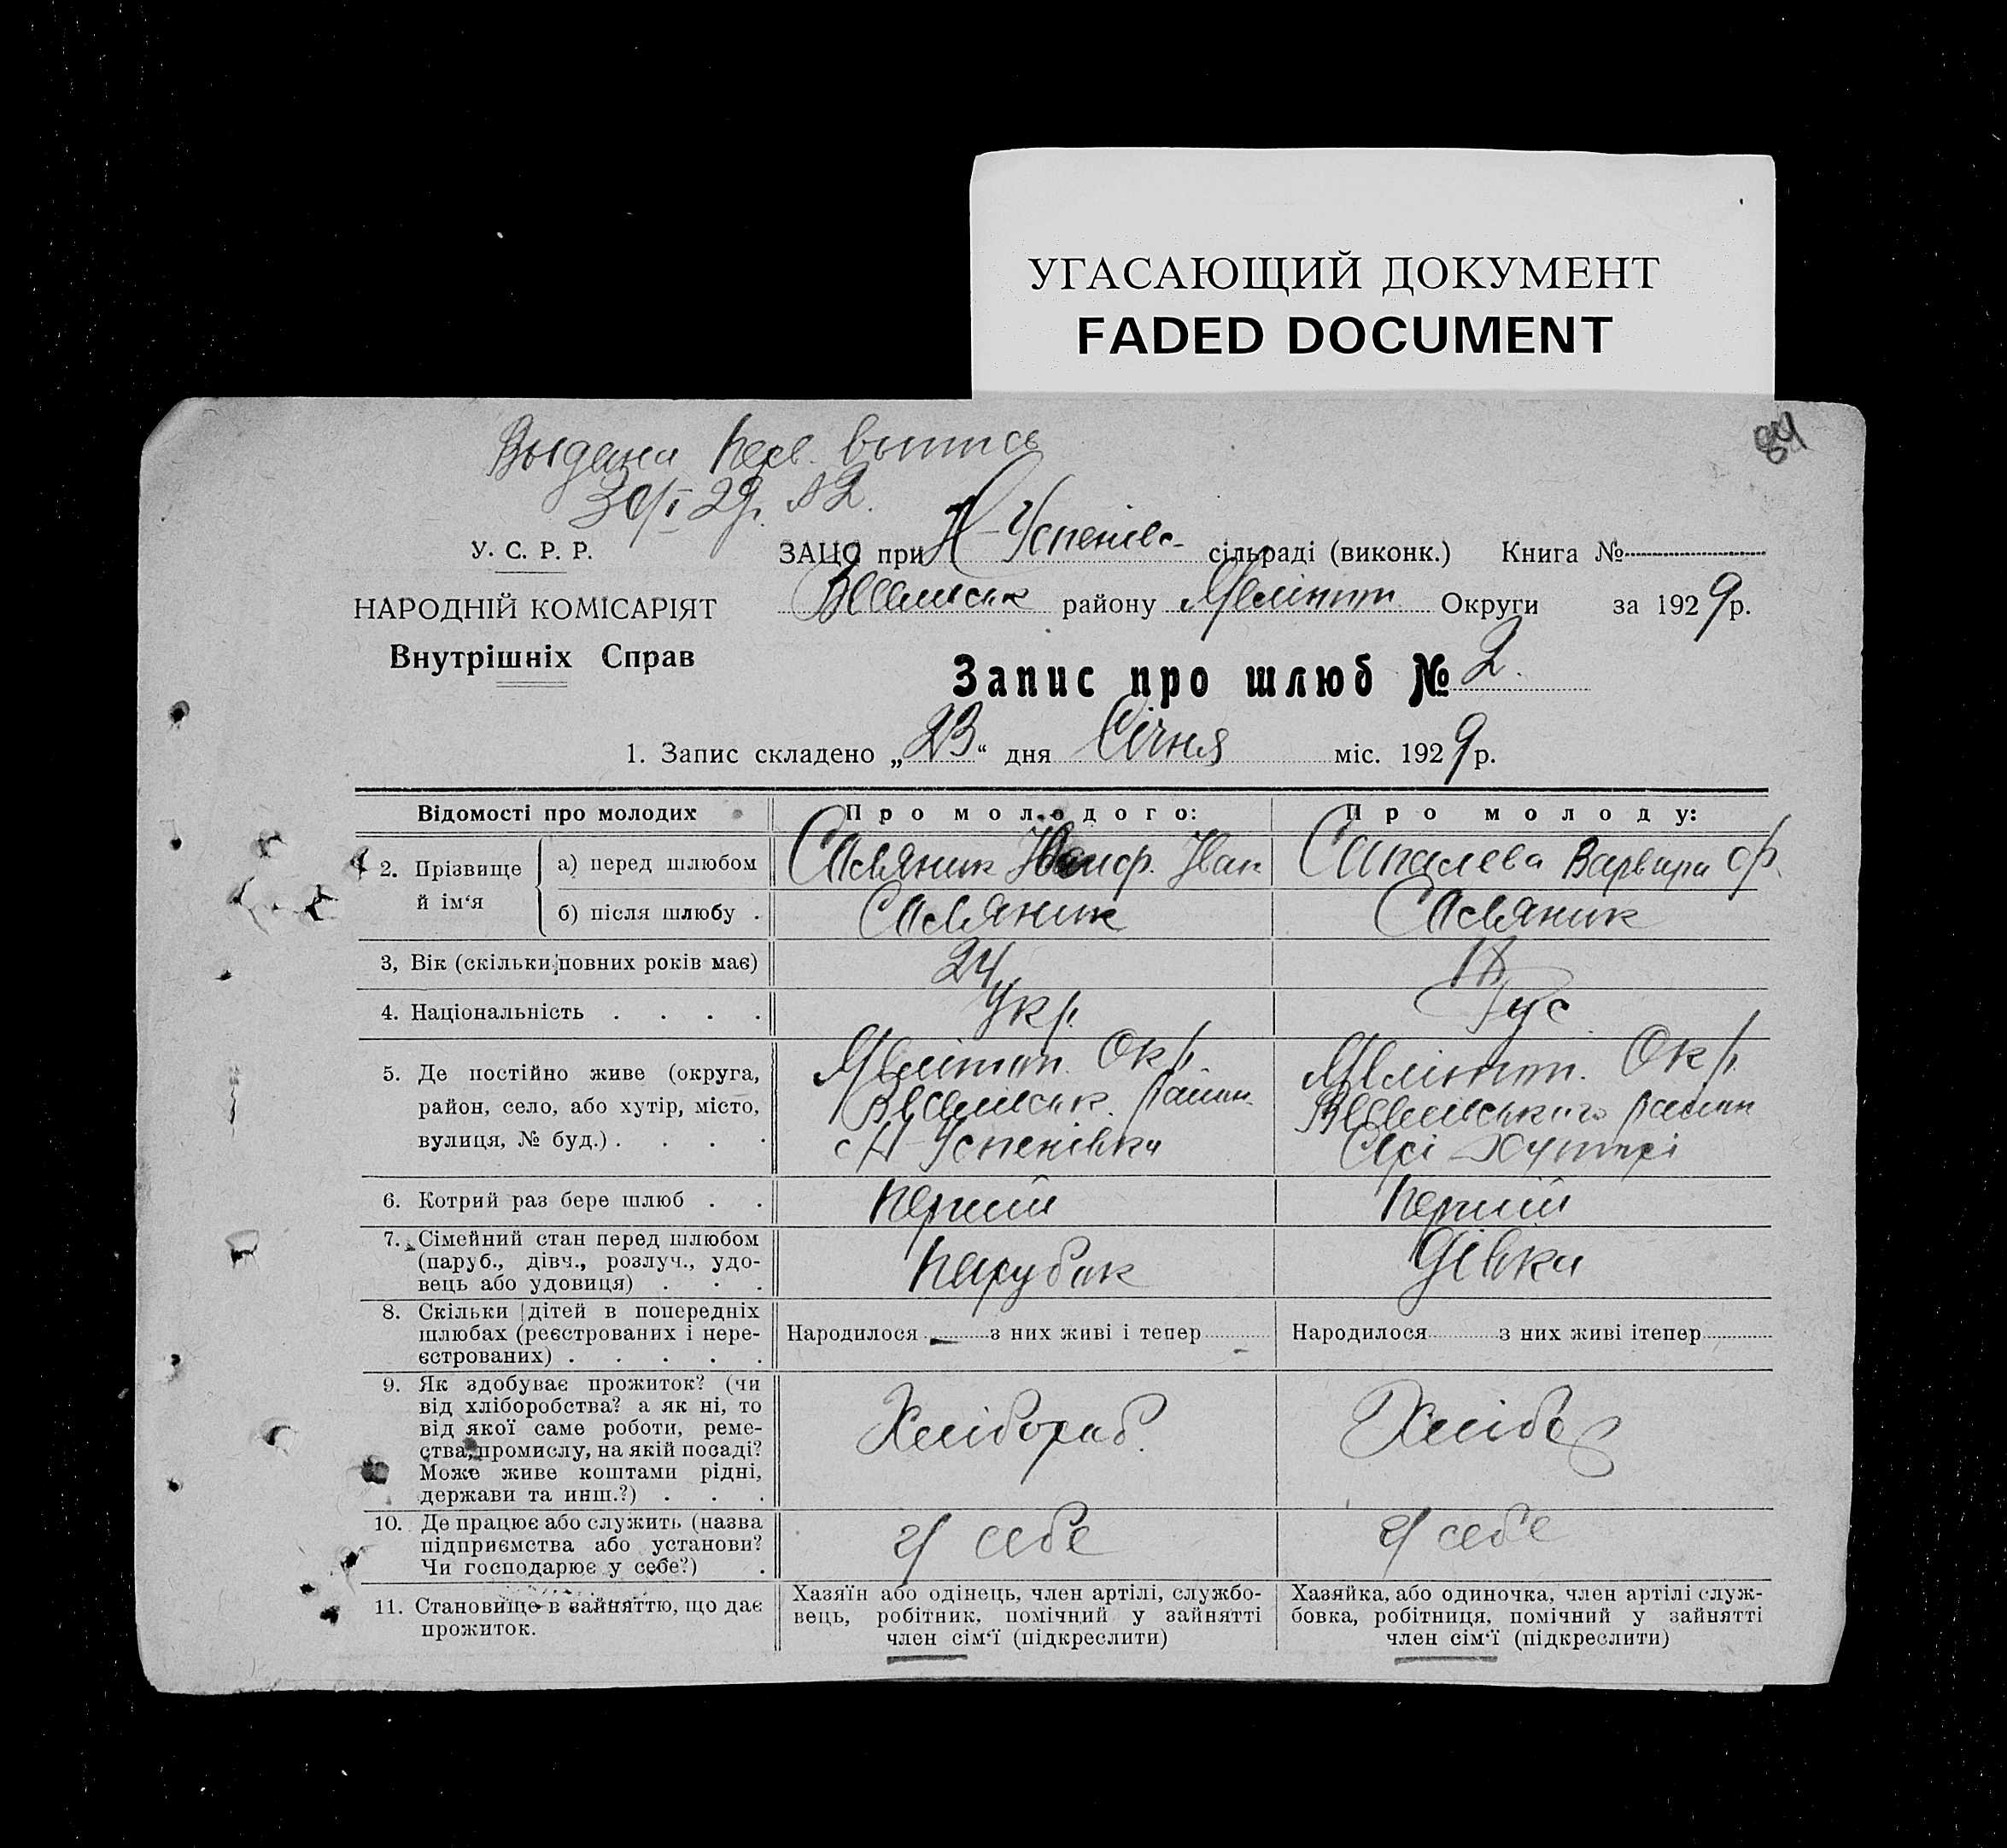 УГАСАЮЩИЙ ДОКУМЕНТ
FADED DOCUMENT
84
Выдана перв. выпись
30/I 29р. №2.
У. С. Р. Р.
НАРОДНІЙ КОМІСАРІЯТ
Внутрішніх Справ
ЗАЦС при Н-Успенівс- сільраді (виконк.) Книга №
району Меліт Округи за 1929р.
Запис про шлюб № 2.
1. Запис складено „23“ дня Січня міс. 1929р.
Відомості про молодих Про молодого: Про молоду:
2. Прізвище й ім‘я а) перед шлюбом Іван Варвара Ф.
б) після шлюбу .
3, Вік (скільки повних років має) 24 18
4. Національність . . . . Укр. Рус
5. Де постійно живе (округа, Мелітоп. Окр. Мелітоп. Окр.
район, село, або хутір, місто, район. район
вулиця, № буд.) . . . . с Н-Успенівка хуторі
6. Котрий раз бере шлюб . . Перший Перший
7. Сімейний стан перед шлюбом
(паруб., дівч., розлуч., удо- Парубок Дівка
вець або удовиця) . . .
8. Скільки дітей в попередніх
шлюбах (реєстрованих і нере- Народилося — з них живі і тепер - Народилося з них живі ітепер
єстрованих) . . . . .
9. Як здобуває прожиток? (чи
від хліборобства? а як ні, то
від якої саме роботи, реме- Хлібороб. Хлібор
ства, промислу, на якій посаді?
Може живе коштами рідні,
держави та инш.?) . . .
10. Де працює або служить (назва
підприємства або установи? у себе у себе
Чи господарює у себе?) .
11. Становище в зайняттю, що дає
прожиток.
Хазяїн або одінець, член артілі, службо-
вець, робітник, помічний у зайнятті
член сім‘ї (підкреслити)
Хазяйка, або одиночка, член артілі служ-
бовка, робітниця, помічний у зайнятті
член сім‘ї (підкреслити)